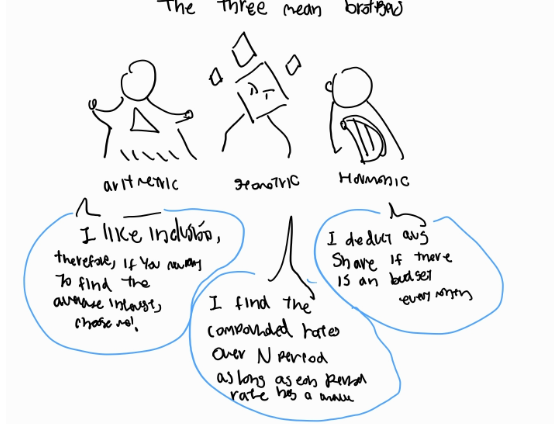 The three mean brothers
aritmetric
geomotric
Harmonic
I like inclusio,
therefore, if you
To find the
average
chose me!
I find the
compounded rates
over N period
as long as each period
rate has a
I deduct avg
Share if there
Is an budget
every month